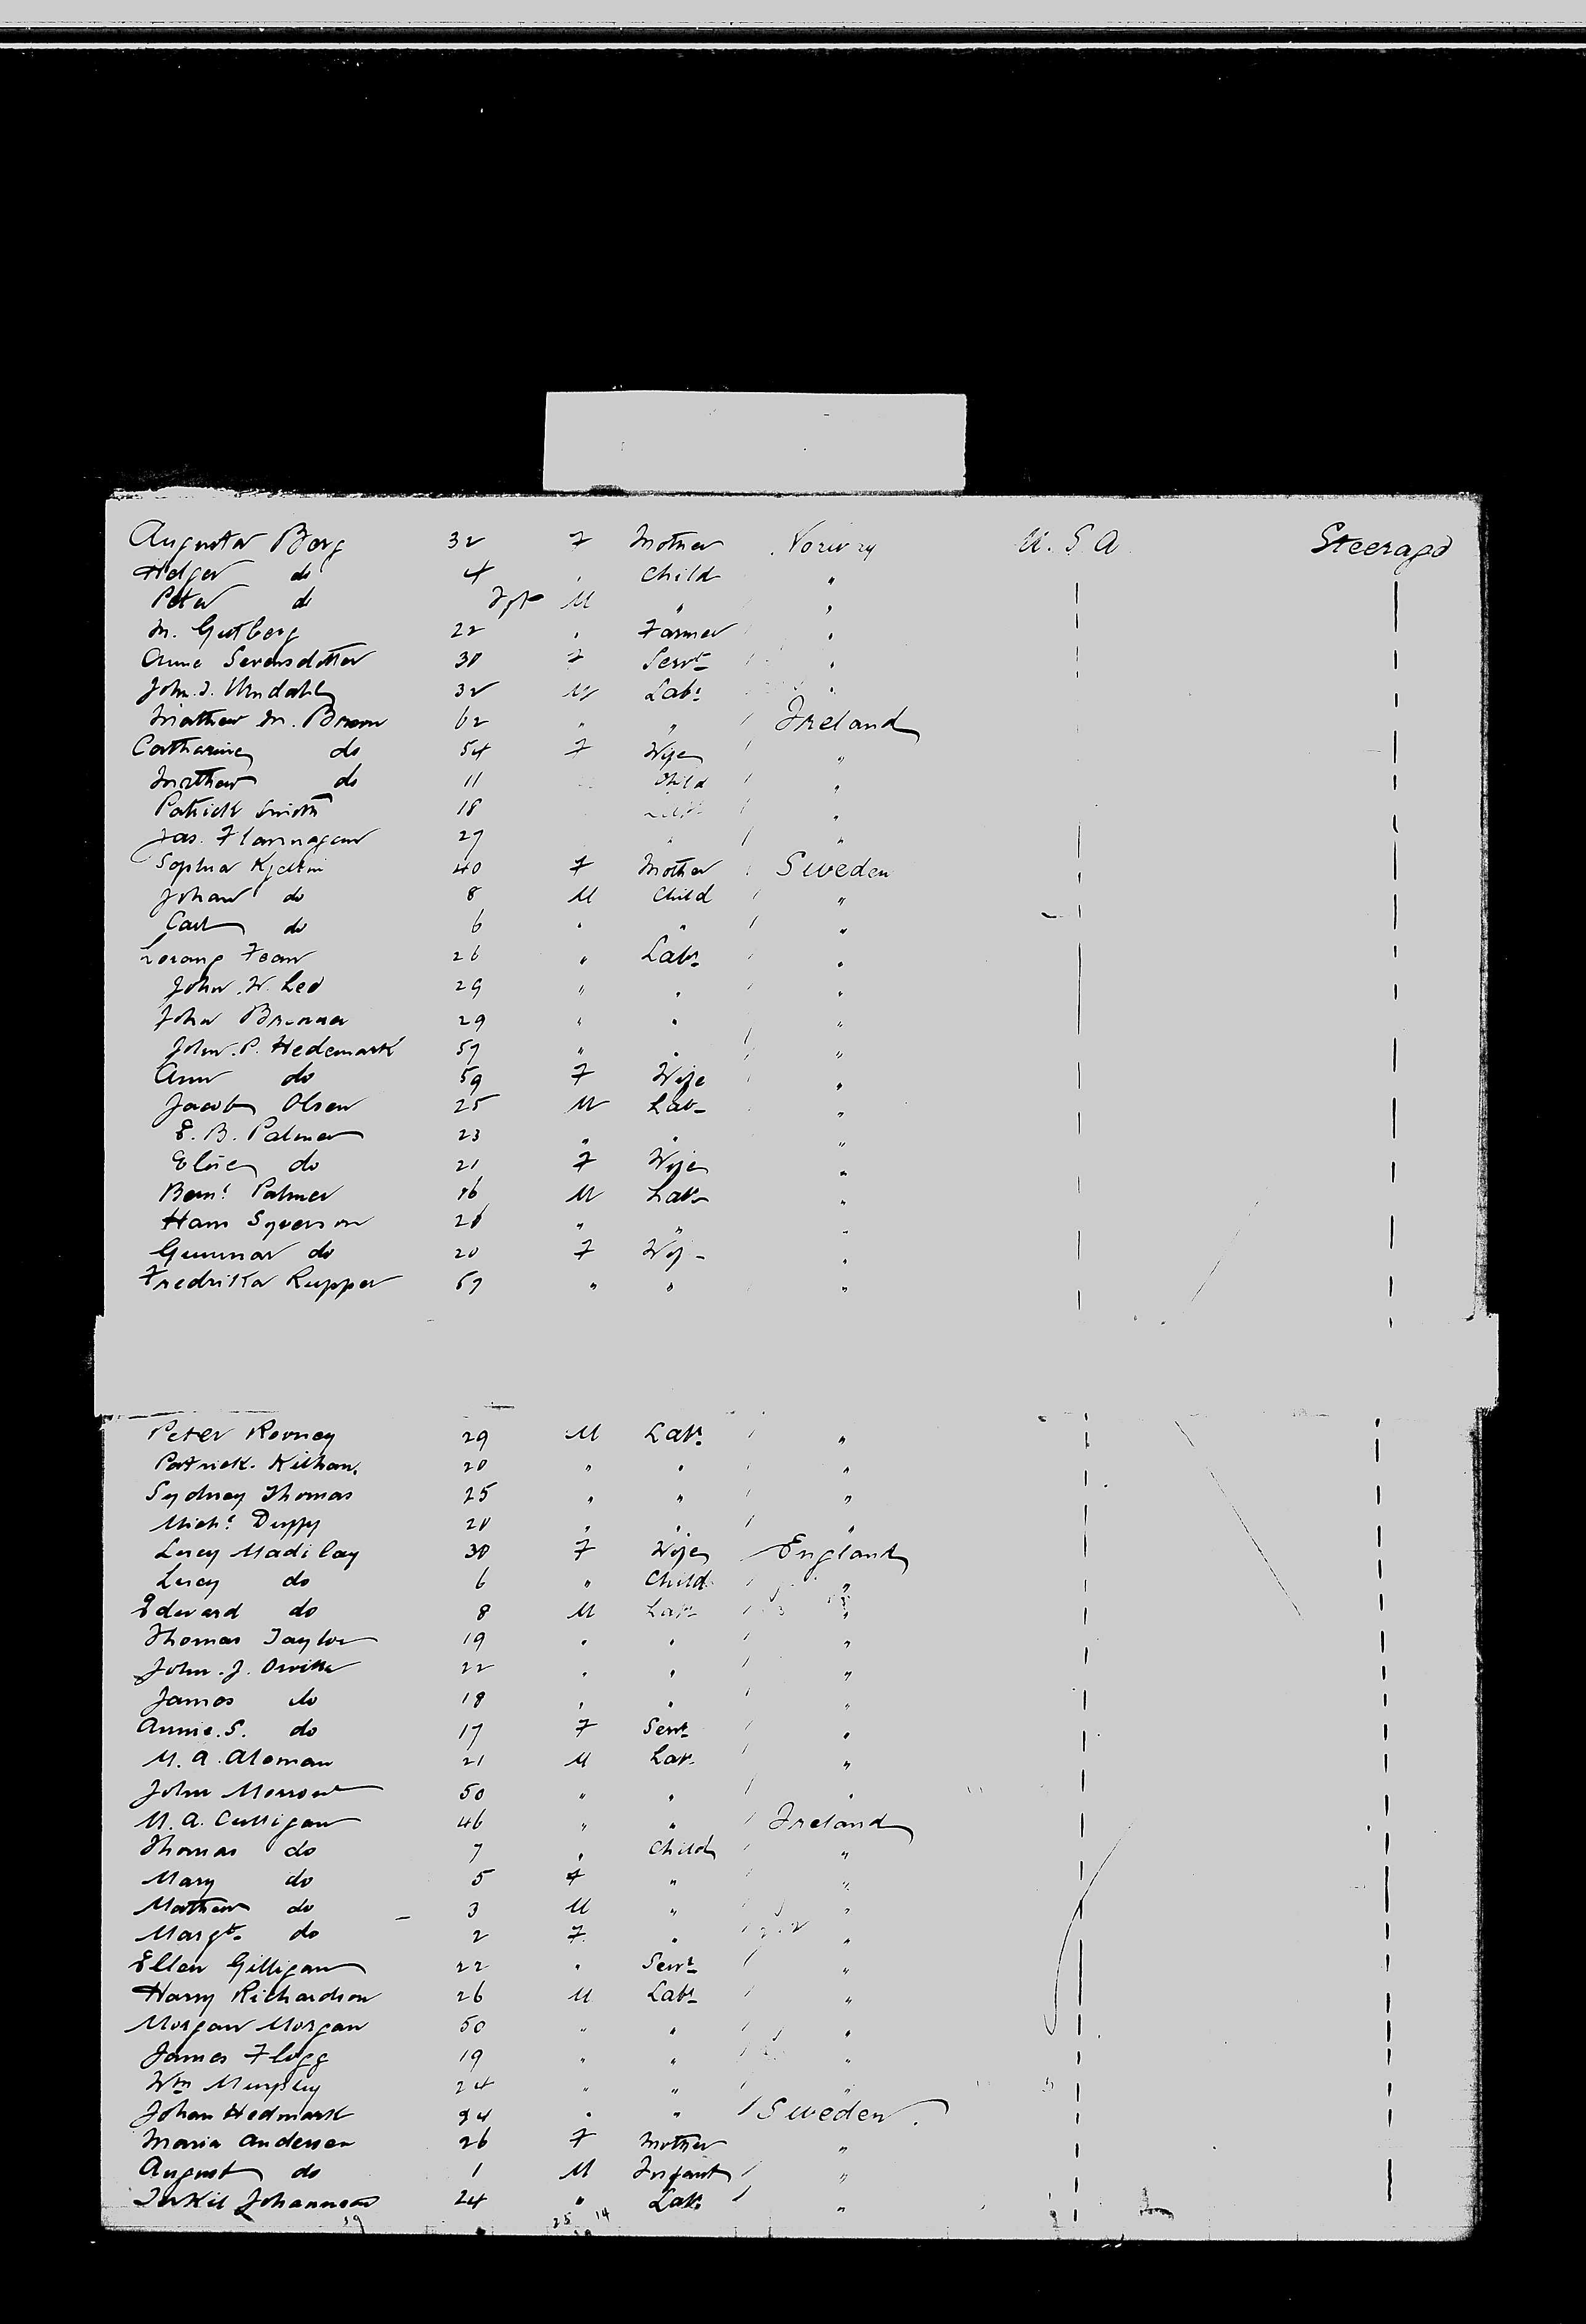 Augusta Berg 32 F Mother Norway U.S.A Steerage
Helger do 4 " Child "
Peter do Inft M " "
M. Gutberg 22 " Farmer "
Anne Severnsdotter 30 F Servt "
John. J. Undahl 32 M Labr "
Mathew M. Breen 62 " " Ireland
Catharine do 54 F Wife "
Mathew do 11 Child "
Patrick Smith 18 "
Jas. Flannagan 27 " "
Sophia 40 F Mother Sweden
Johan do 8 M Child "
Carl do 6 " " "
26 " Labr "
John. W. Leo 29 " " "
John Brenner 29 " " "
John. P. Hedemark 57 " " "
Ann do 59 F Wife "
Jacob Olsen 25 M Lab "
E. B. Palmer 23 " " "
Elise do 21 F Wife "
Bernt Palmer M Labr "
Hans Syverson " " "
Gunnar do 20 F Wif "
Fredrika Rupper " " "
Peter Rooney 29 M Labr "
Patrick. 20 " " "
Sydney Thomas 25 " " "
Michl Duffy 20 " " "
Lucy Madilay 30 F Wife England
Lucy do 6 " Child "
Edward do 8 M Labr "
Thomas Taylor 19 " " "
John. J. 22 " " "
James do 18 " " "
Annie. S. do 17 F Servt "
M. A. Aloman 21 M Labr "
John 50 " " "
M. A. Culligan 46 " " Ireland
Thomas do 7 " Child "
Mary do 5 F " "
Mathew do 3 M " "
Margt do 2 F " "
Ellen Gilligan 22 " Servt "
Harry Richardson 26 M Labr "
Morgan Morgan 50 " " "
James Flogg 19 " " "
Wm Murphy 24 " " "
Johan Hedmark " " Sweden.
Maria Andersen 26 F Mother "
August do 1 M Infant "
Johannes 24 " Labr "
39 25 14